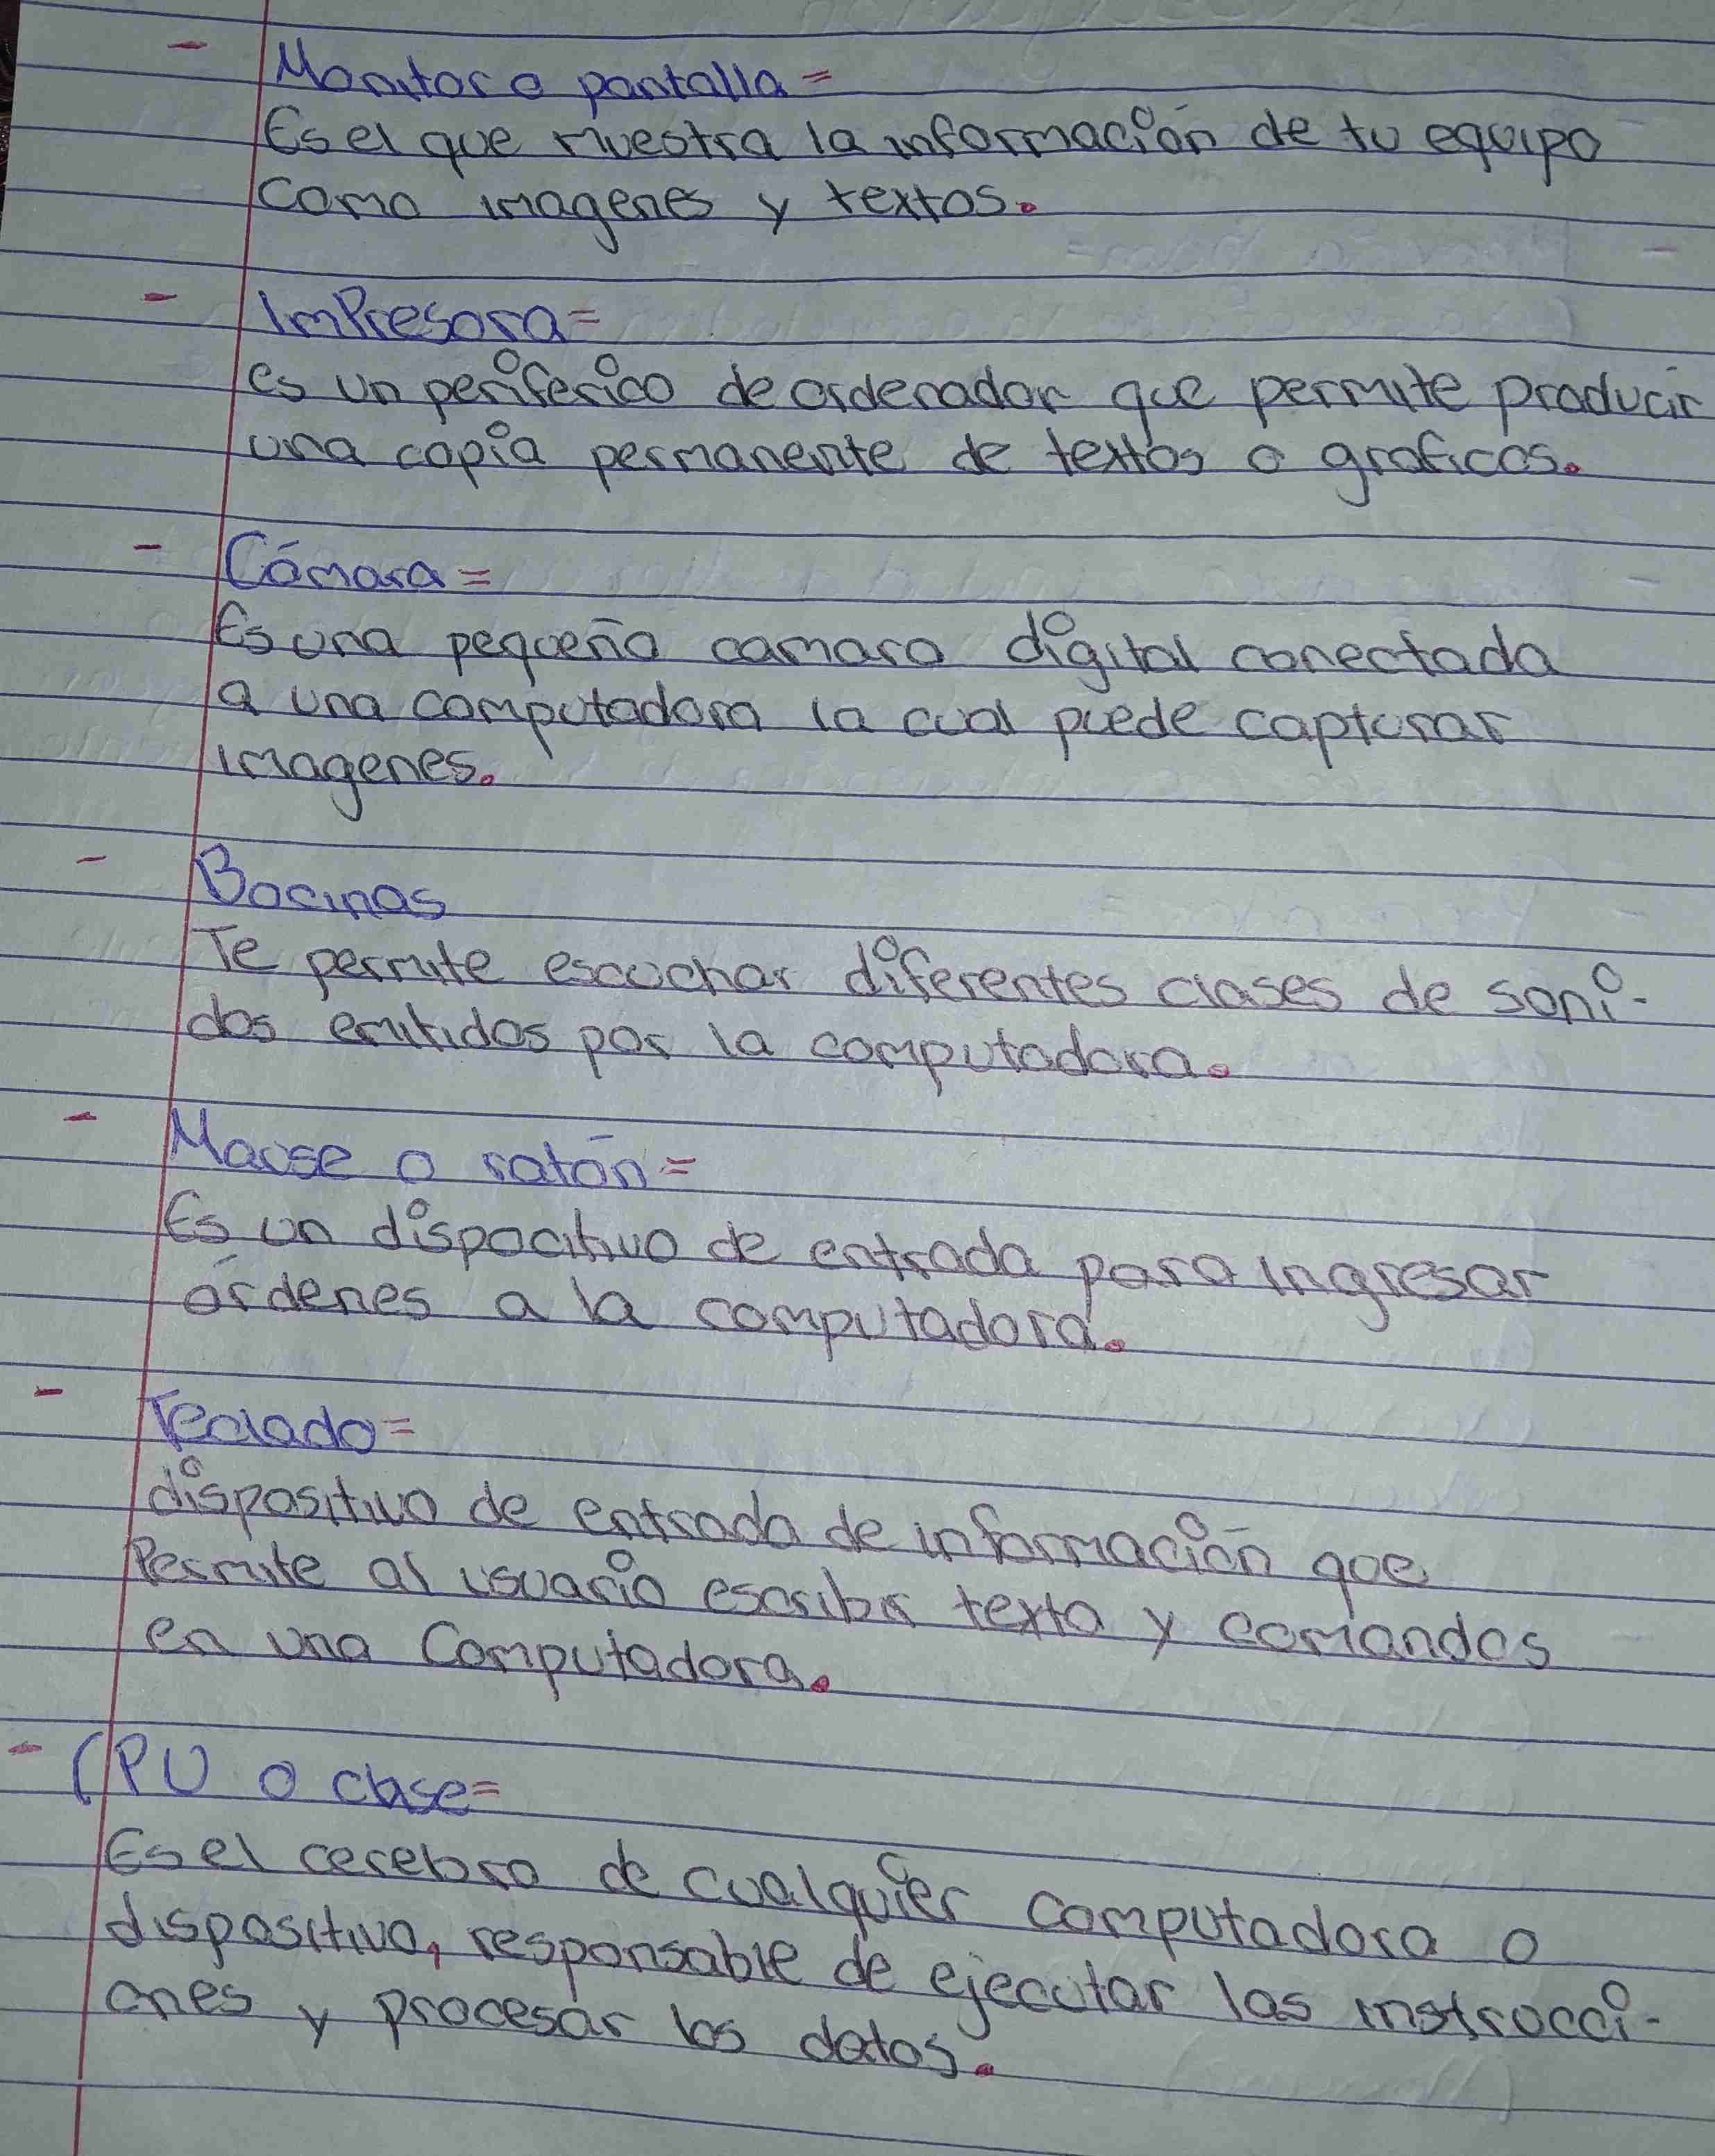 - Monitor o pantalla =
Es el que muestra la información de tu equipo
como imagenes y textos.
- ImPresora =
es un periferico de ordenador que permite producir
una copia permanente de textos o graficos.
- Cámara =
Es una pequeña camara digital conectada
a una computadora la cual puede capturar
imagenes.
- Bocinas
Te permite escuchar diferentes clases de soni-
dos emitidos por la computadora.
- Mause o ratón =
Es un dispocitivo de entrada para ingresar
órdenes a la computadora.
- Teclado =
dispositivo de entrada de información que
Permite al usuario escribir texto y comandos
en una Computadora.
- CPU o case =
Es el cerebro de cualquier computadora o
dispositivo, responsable de ejecutar las instrucci-
ones y procesar los datos.